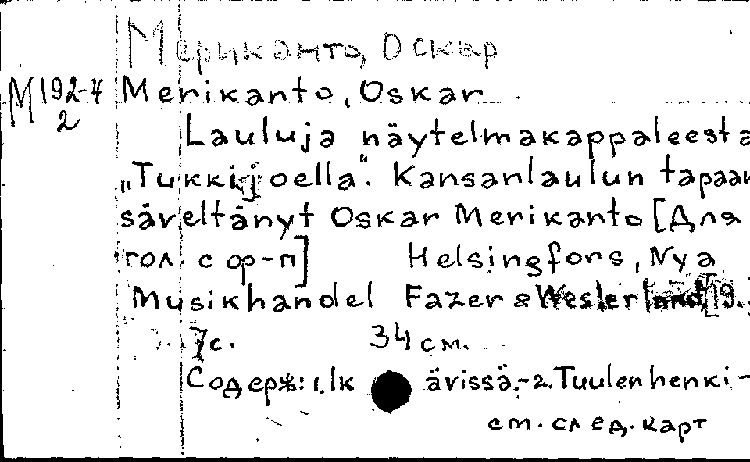 Мериканто, Оскар
М 192-4 Merikanto, Oskar
2
Lauluja näytelmäkappaleesta
„Tukkijoella". Kansanlaulun tapaan
säveltänyt Oskar Merikanto [Для
гол. с ор-п] Helsingfors, Nya
Musikhandel Fazer & Westerlund [19.
7с. 34 см.
Содерж: 1. Ik ävissä,-2. Tuulenhenki-
см. след. карт